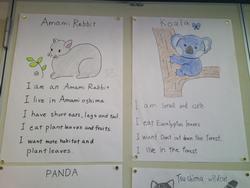 Amami Rabbit
I am an Amami Rabbit
I live in Amami oshima
I have short ears, legs and tail
I eat plant leaves and fruits
I want more habitat and
plant leaves.
Koala
I am small and cute
I eat Eucalyptus leaves
I want Don't cut down the forest.
I live in the forest
PANDA
Tsushima wildcat